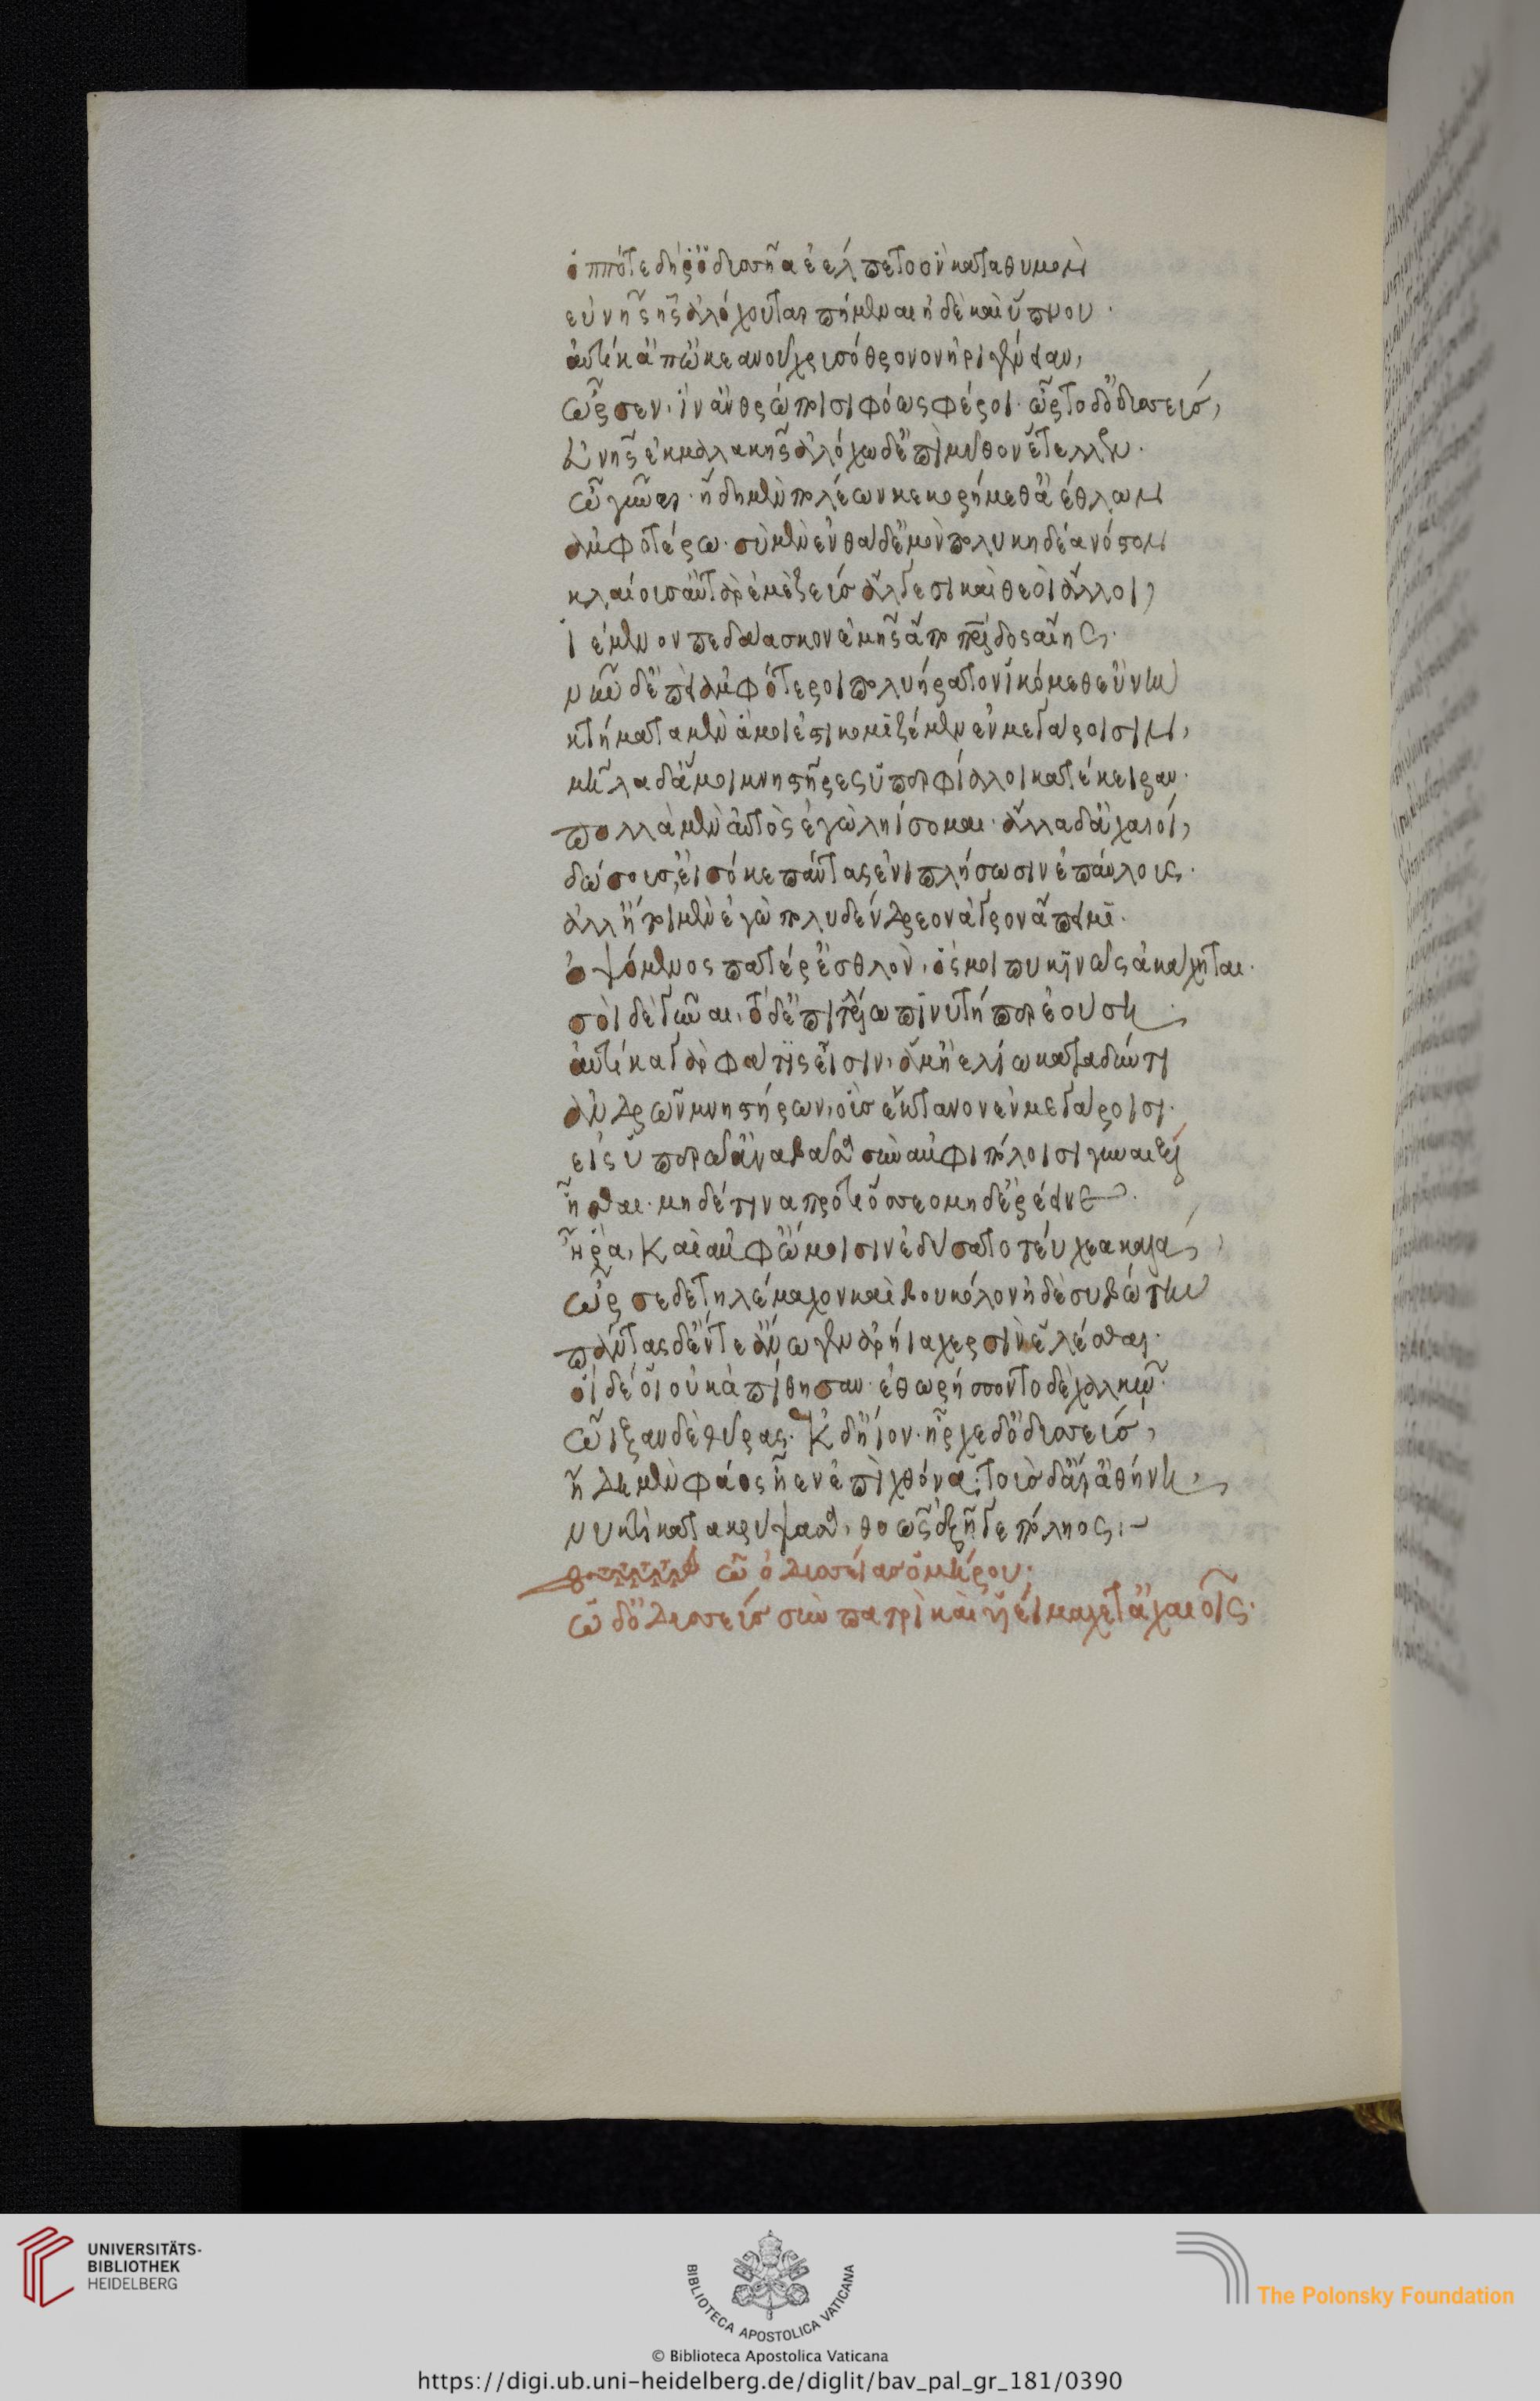 ὁππότε δή ῥ' ὀδυσῆα ἐέλπετο ὃν κατὰ θυμὸν
εὐνῆς ἧς ἀλόχου ταρπήμεναι ἠδὲ καὶ ὕπνου·
αὐτίκ' ἀπ' ὠκεανοῦ χρυσόθρονον ἠριγένειαν,
ὦρσεν, ἵν' ἀνθρώποισι φόως φέροι· ὦρτο δ' ὀδυσεὺς,
εὐνῆς ἐκ μαλακῆς ἀλόχω δ' ἐπὶ μῦθον ἔτελλεν·
ὦ γύναι· ἤδη μὲν πολέων κεκορήμεθ' ἀέθλων
ἀμφοτέρω· σὺ μὲν ἐνθάδ' ἐμὸν πολυκηδέα νόστον
κλαίουσ' αὐτὰρ ἐμὲ ζεὺς ἄλγεσι καὶ θεοὶ ἄλλοι,
ἱέμενον πεδάασκον ἐμῆς ἀπο πρίδος αἴης·
νῦν δ' ἐπεὶ ἀμφότεροι πολυήρατον ἱκόμεθ' εὐνὴν
κτήματα μὲν ἅ μοι ἐστι κομιζέμεν ἐν μεγάροισιν,
μῆλα δ' ἅ μοι μνηστῆρες ὑπερφίαλοι κατέκειραν·
πολλὰ μὲν αὐτὸς ἐγὼ ληΐσομαι· ἄλλα δ' ἀχαιοί,
δώσουσ', εἰσόκε πάντας ἐνιπλήσωσιν ἐπαύλους·
ἀλλ' ἤτοι μὲν ἐγὼ πολυδένδρεον ἀγρὸν ἄπειμι·
ὀψόμενος πατέρ' ἐσθλὸν, ὅς μοι πυκινῶς ἀκάχηται·
σοὶ δὲ γύναι, τόδ' ἐπιτέλλω πινυτή περ ἐούση·
αὐτίκα γὰρ φάτις εἶσιν, ἅμ' ἠελίω καταδύντι
ἀνδρῶν μνηστήρων, οὓς ἔκτανον ἐν μεγάροισι·
εἰς ὑπερῶ' ἀναβᾶσα σὺν ἀμφιπόλοισι γυναιξὶ
ἧσθαι· μηδέ τινα προτιόσσεο μηδ' ἐρέεινε·
ἦ ῥα, καὶ ἀμφ' ὤμοισιν ἐδύσατο τεύχεα καλά,
ὦρσε δὲ τηλέμαχον καὶ βουκόλον ἠδὲ συβώτην
πάντας δ' ἔντε' ἄνωγεν ἀρήϊα χερσὶν ἑλέσθαι·
οἱ δέ οἱ οὐκ ἀπίθησαν· ἐθωρήσσοντο δὲ χαλκῶ·
ὤϊξαν δὲ θύρας· ἐκ δ' ἤϊον· ἦρχε δ' ὀδυσεύς,
ἤδη μὲν φάος ἦεν ἐπὶ χθόνα· τοὺς δ' ἄρ' ἀθήνη,
νυκτὶ κατακρύψασα, θοῶς ἐξῆγε πόληος:
ω ὀδυσσείας ὁμήρου:
ω δ' ὀδυσεὺς σὺν πατρὶ καὶ υἱέι μάχετ' ἀχαιοῖς·
UNIVERSITÄTS-
BIBLIOTHEK
HEIDELBERG
BIBLIOTECA APOSTOLICA VATICANA
The Polonsky Foundation
© Biblioteca Apostolica Vaticana
https://digi.ub.uni-heidelberg.de/diglit/bav_pal_gr_181/0390